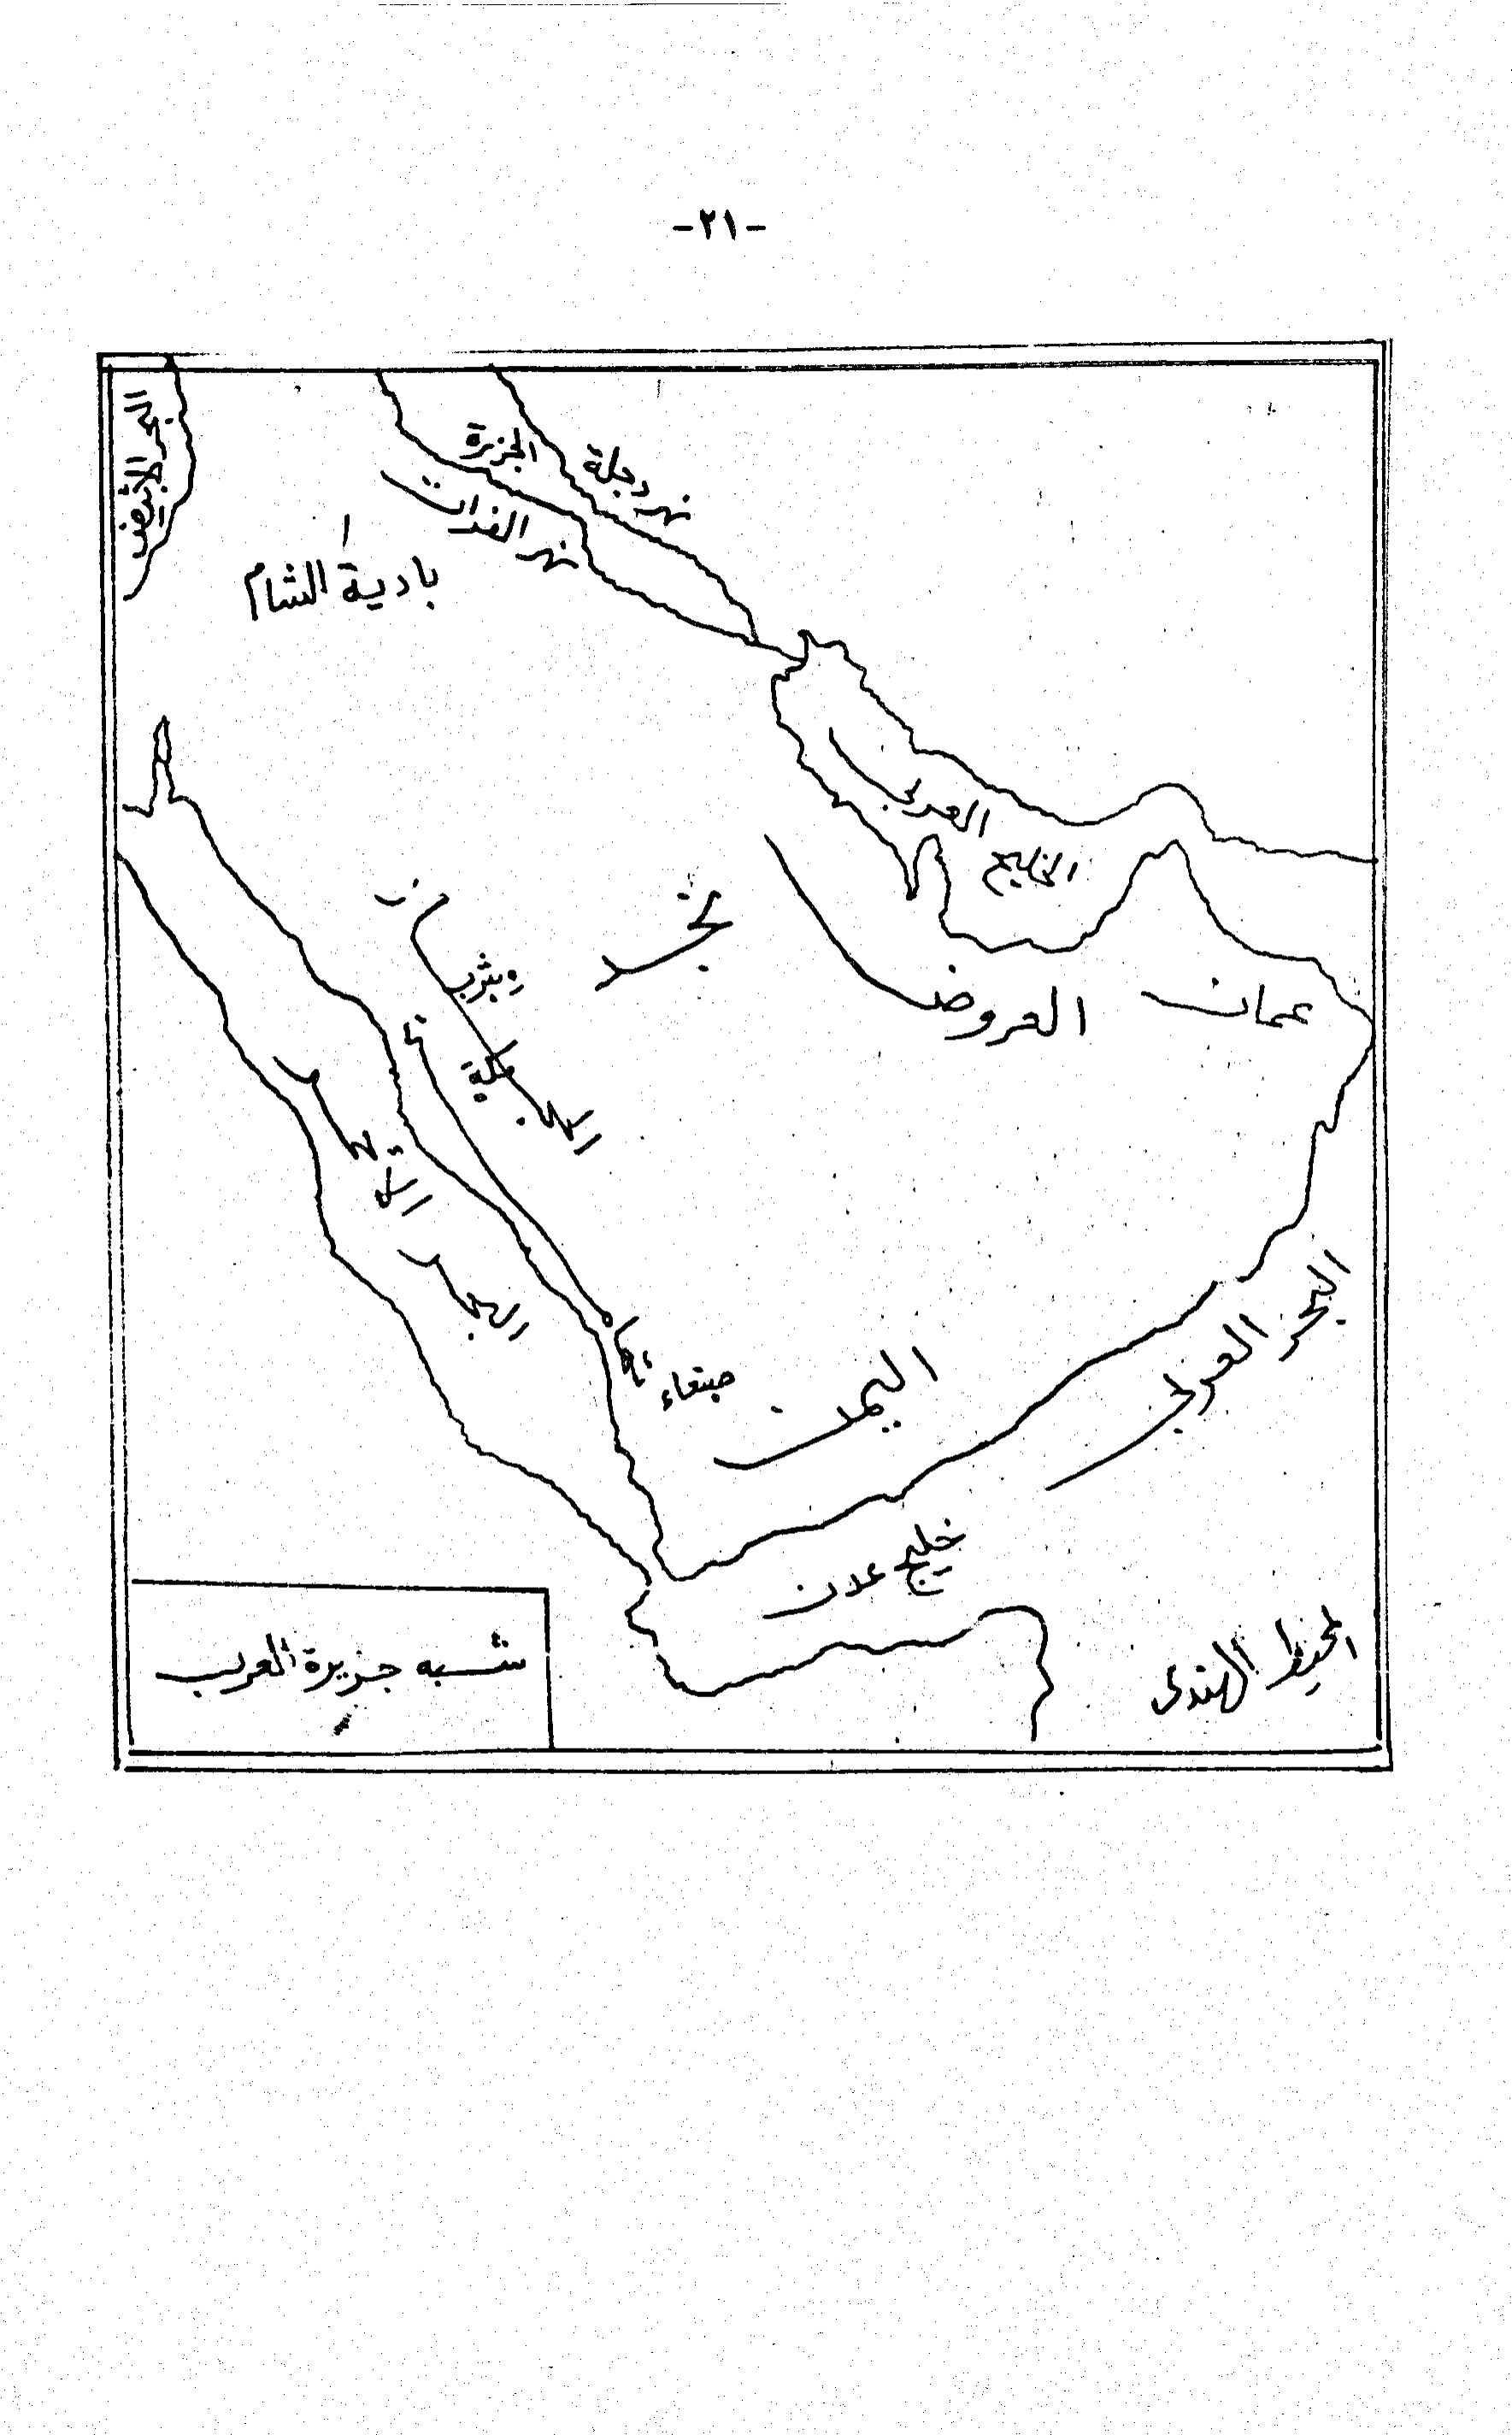 -٢١-
البحر الأبيض
الجزيرة
نهر دجلة
نهر الفرات
بادية الشام
الخليج العربى
نجد
يثرب
العروض
عمان
مكة
صنعاء
اليمن
البحر العربى
خليج عدن
المحيط الهندى
شبه جزيرة العرب